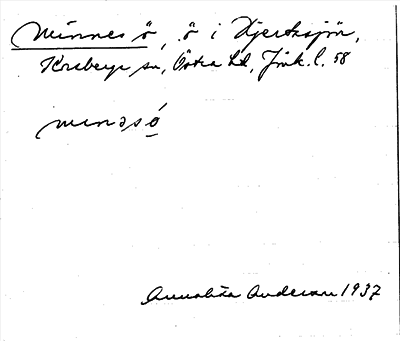 Minnes ö, ö i Hjertsjön,
Korsberga sn, Östra hd, Jönk. l. 58
minəsö
Annalisa Anderson 1937